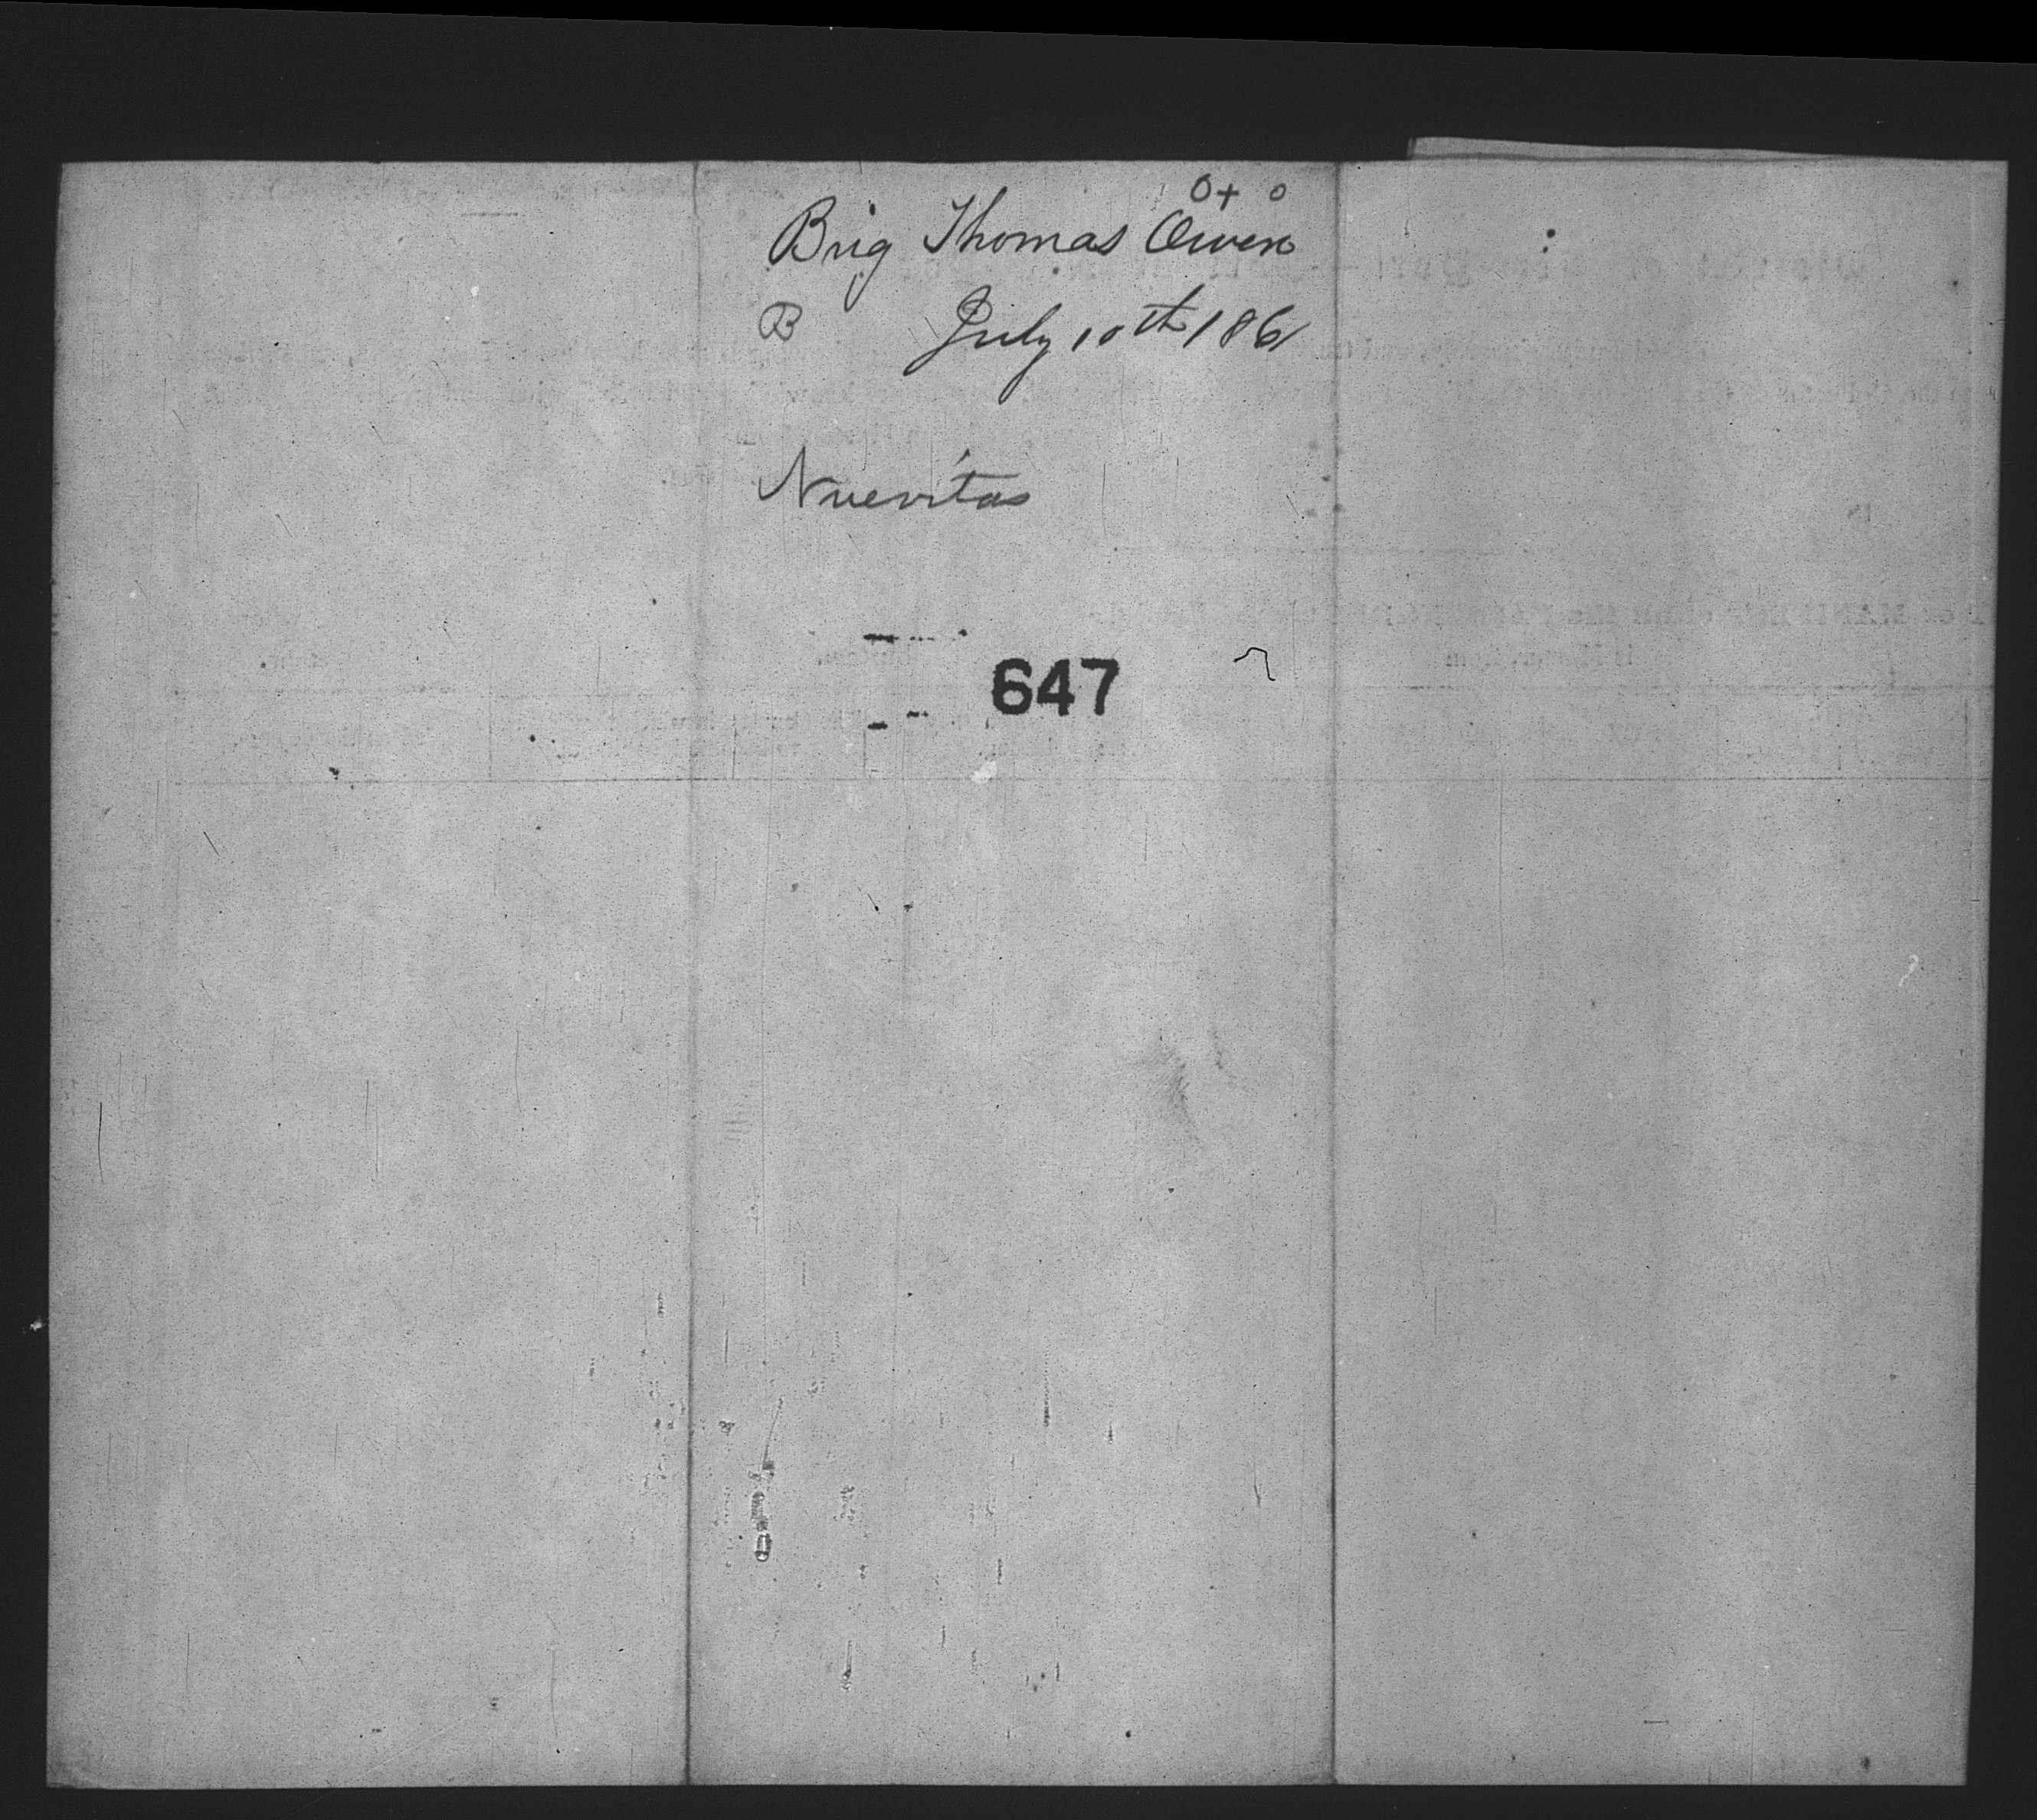 O+ O
Brig Thomas Owen
B July 10th 1861
Nuevitas
647